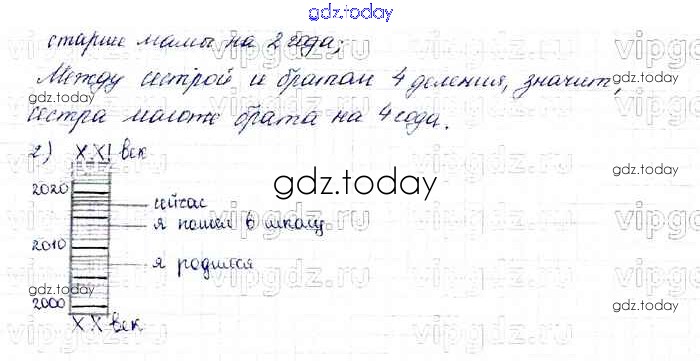 gdz.today
старше мамы на 2 года;
Между сестрой и братом 4 деления, значит,
сестра моложе брата на 4 года.
2) XXI век
2020
сейчас
я пошел в школу
2010
я родился
2000
XX век
gdz.today
gdz.today
gdz.today
gdz.today
gdz.today
gdz.today
gdz.today
gdz.today
vipgdz.ru
vipgdz.ru
vipgdz.ru